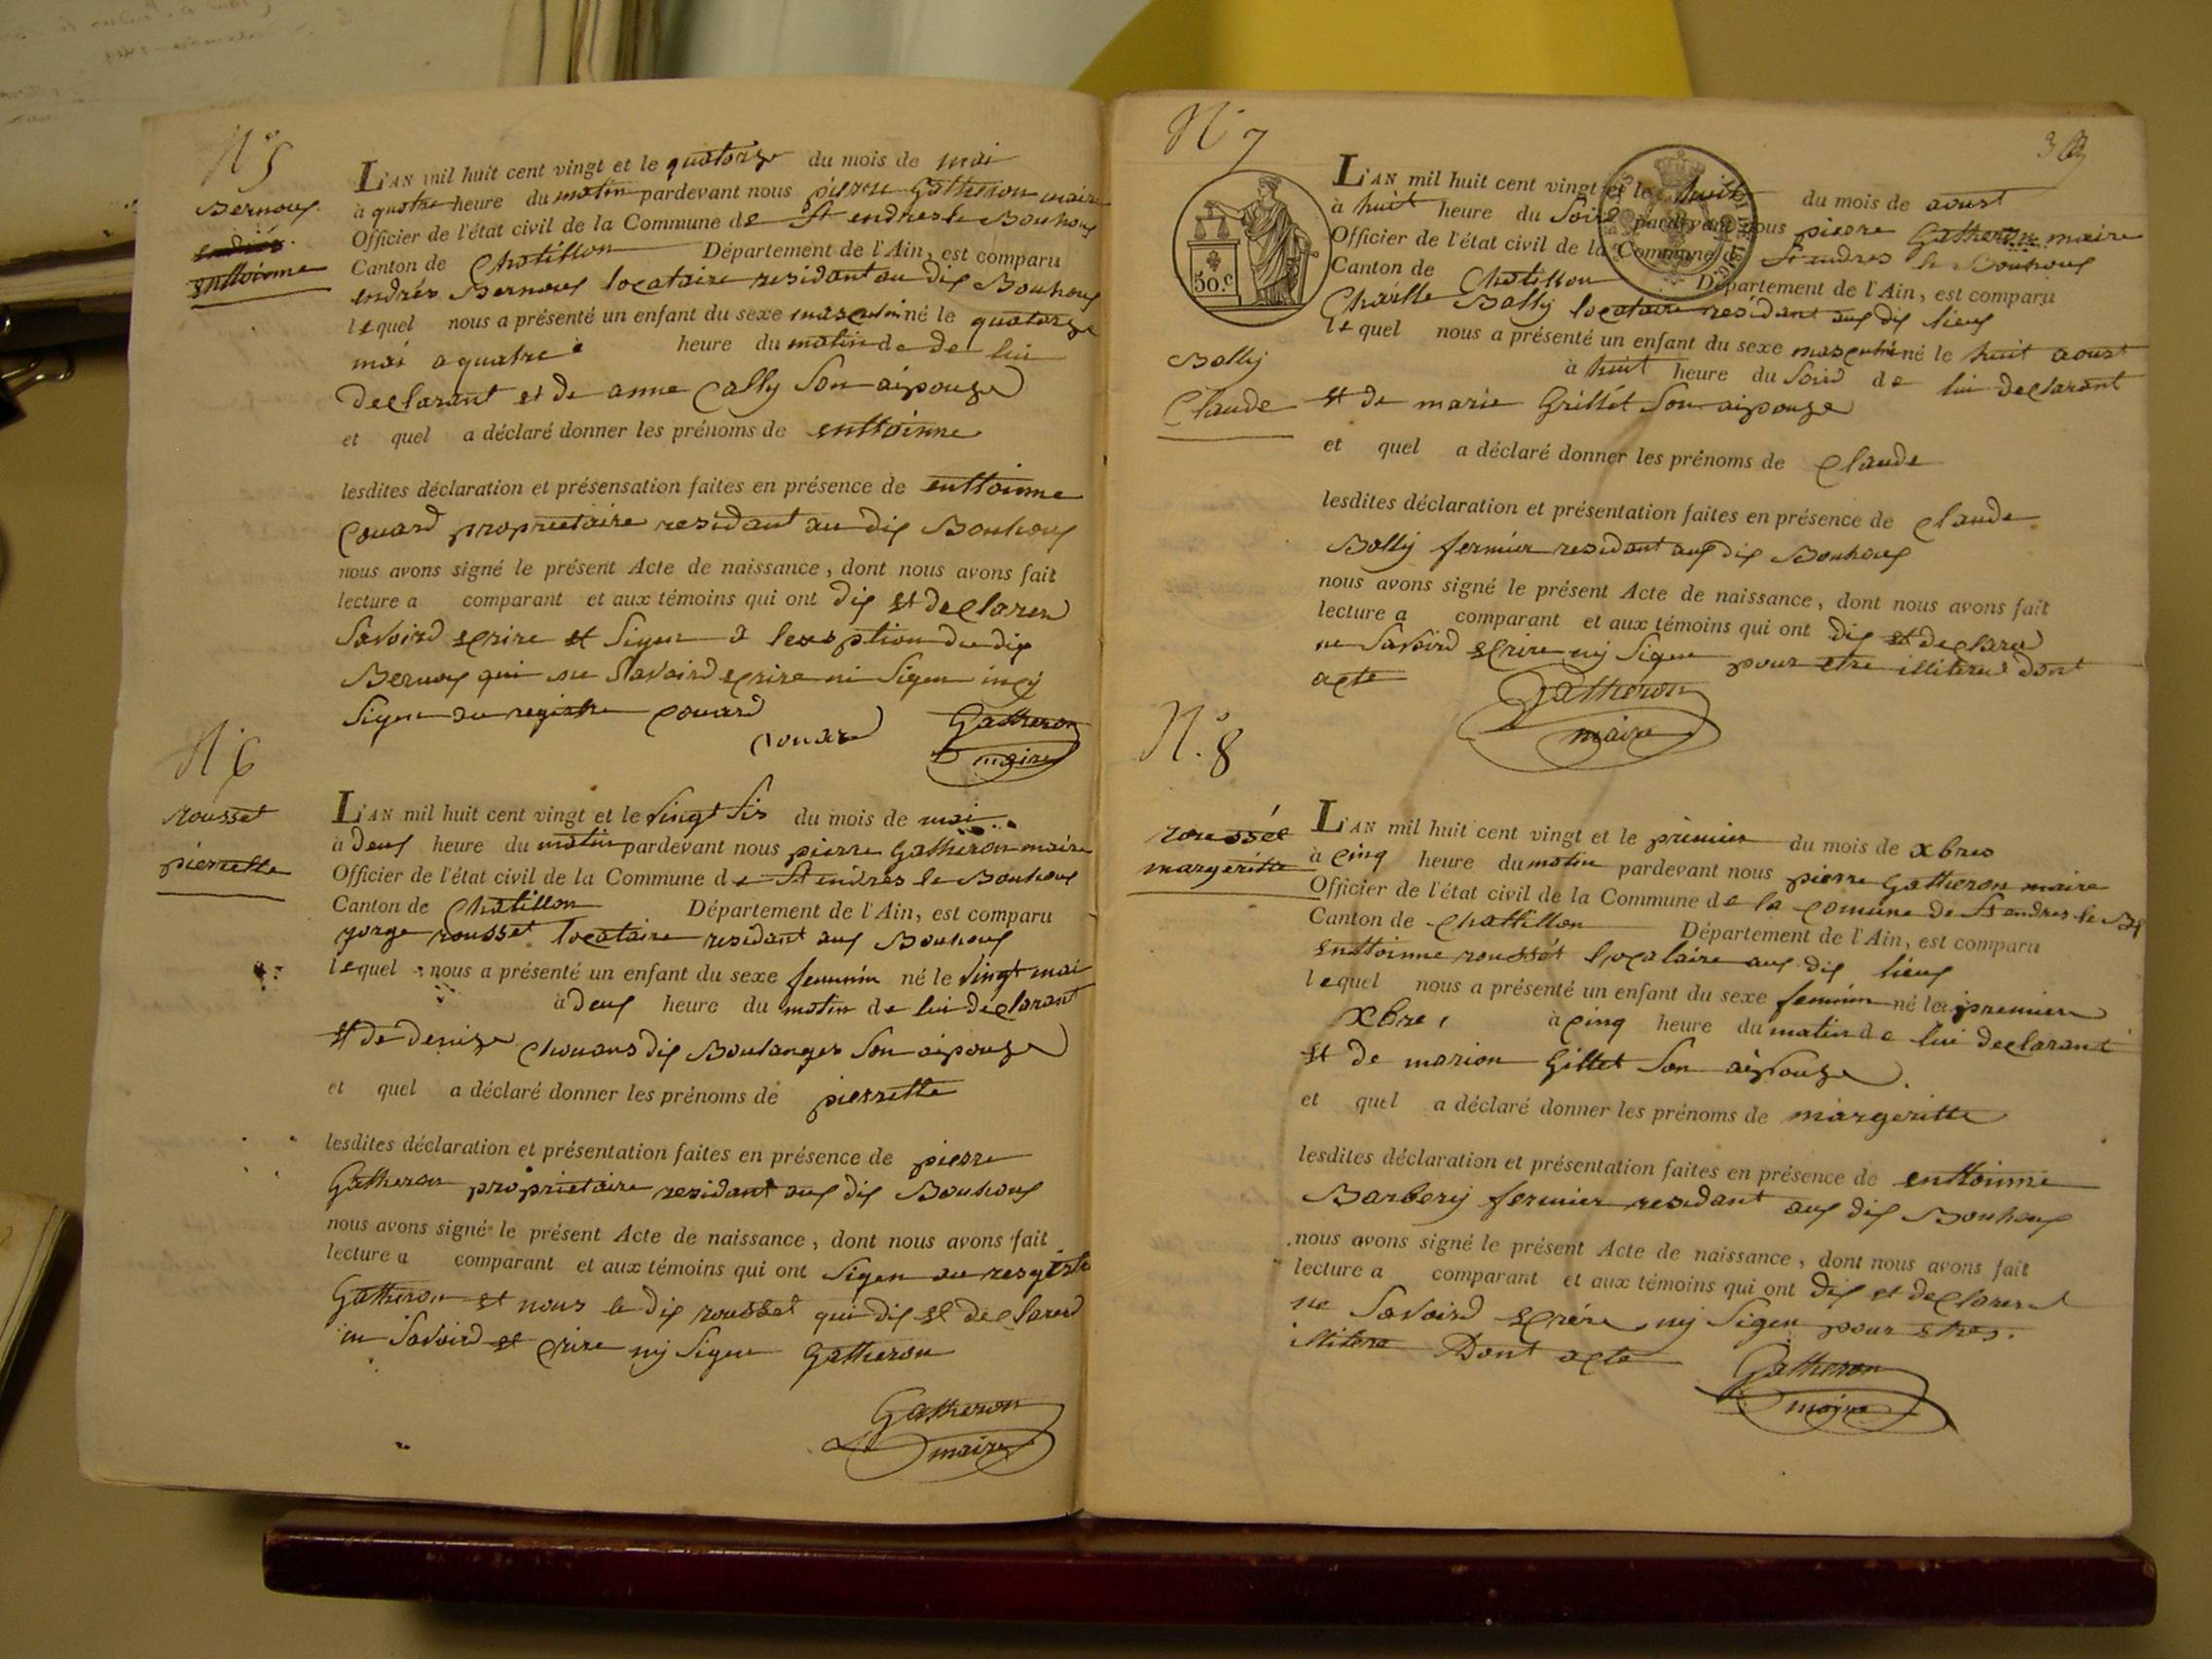 N° 5
Bernoux
endrés
enttoinne
L'AN mil huit cent vingt et le quatorze du mois de mai
à quatre heure du matin pardevant nous pierre Gatheron maire
Officier de l'état civil de la Commune de St endres le Bouhoux
Canton de Chatillon Département de l'Ain, est comparu
endrés Bernoux locataire residant au dix Bouhoux
lequel nous a présenté un enfant du sexe masculin né le quatorze
mai a quatre heure du matin de de lui
declarant et de anne Cally Son aipouze
et quel a déclaré donner les prénoms de enttoinne
lesdites déclaration et présensation faites en présence de enttoinne
Couard proprietaire residant au dix Bouhoux
nous avons signé le présent Acte de naissance, dont nous avons fait
lecture a comparant et aux témoins qui ont dix et declaren
Savoird ecrire et Signe a lexseption du dix
Bernoux qui ne Savoird ecrire ni Signe
Signe au registre Couard
Couard Gatheron
maire
N° 6
rousset
pierrette
L'AN mil huit cent vingt et le Vingt Sis du mois de mai
à deux heure du matin pardevant nous pierre Gatheron maire
Officier de l'état civil de la Commune de St endres le Bouhoux
Canton de Chatillon Département de l'Ain, est comparu
gorge rousset locataire residant aux Bouhoux
lequel nous a présenté un enfant du sexe feminin né le Vingt mai
à deux heure du matin de lui declarant
et de denize Chouard dix Boulanger Son aipouze
et quel a déclaré donner les prénoms de pierrette
lesdites déclaration et présentation faites en présence de pierre
Gatheron proprietaire residant aux dix Bouhoux
nous avons signé le présent Acte de naissance, dont nous avons fait
lecture a comparant et aux témoins qui ont Signe au resgistre
Gatheron et nous le dix rousset qui dix et declared
ne Savoird et crire nij Signe Gatheron
Gatheron
maire
N° 7
50.c
Bally
Claude
L'AN mil huit cent vingt et le huit du mois de aoust
à huit heure du Soird pardevant nous pierre Gatheron maire
Officier de l'état civil de la Commune de St endres le Bouhoux
Canton de Chatillon Département de l'Ain, est comparu
Charlle Bally locataire residant aux dix lieux
lequel nous a présenté un enfant du sexe masculin né le huit aoust
à huit heure du Soird de lui declarant
et de marie Grillet Son aipouze
et quel a déclaré donner les prénoms de Claude
lesdites déclaration et présentation faites en présence de Claude
Bally fermier residant aux dix Bouhoux
nous avons signé le présent Acte de naissance, dont nous avons fait
lecture a comparant et aux témoins qui ont dix et declared
ne Savoird ecrire nij Signe pour etre illiteret dont
acte Gatheron
maire
N° 8
roussét
margeritte
L'AN mil huit cent vingt et le premier du mois de xbres
à cinq heure du matin pardevant nous pierre Gatheron maire
Officier de l'état civil de la Commune de la comune de St endres le Bx
Canton de Chattillon Département de l'Ain, est comparu
enttoinne roussét locataire aux dix lieux
lequel nous a présenté un enfant du sexe feminin né le premier
xbre à cinq heure du matin de lui declarant
et de marion Gillet Son aipouze
et quel a déclaré donner les prénoms de margeritte
lesdites déclaration et présentation faites en présence de enttoinne
Barberij fermier residant aux dix Bouhoux
nous avons signé le présent Acte de naissance, dont nous avons fait
lecture a comparant et aux témoins qui ont dix et declarent
ne Savoird ecrire nij Signe pour etres
illitere Dont acte Gatheron
maire